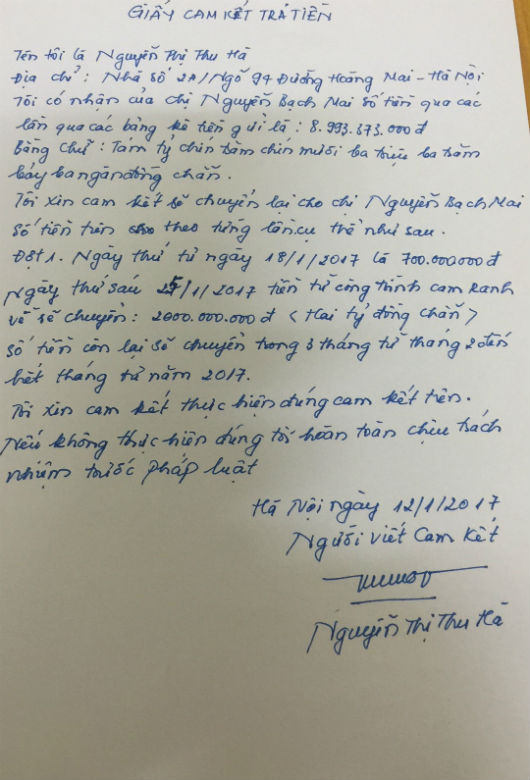 GIẤY CAM KẾT TRẢ TIỀN
Tên tôi là Nguyễn Thị Thu Hà
Địa chỉ: Nhà số 2A/Ngõ 99 Đường Hoàng Mai - Hà Nội
Tôi có nhận của chị Nguyễn Bạch Mai số tiền qua các
lần qua các bảng kê tiền gửi là: 8.993.373.000đ
Bằng chữ: Tám tỷ chín trăm chín mươi ba triệu ba trăm
bảy ba ngàn đồng chẵn.
Tôi xin cam kết sẽ chuyển lại cho chị Nguyễn Bạch Mai
số tiền trên theo từng lần cụ thể như sau.
Đợt 1. Ngày thứ tư ngày 18/1/2017 là 700.000.000đ
Ngày thứ sáu /1/2017 tiền từ công trình cam ranh
về sẽ chuyển: 2000.000.000đ <Hai tỷ đồng chẵn>
số tiền còn lại sẽ chuyển trong 3 tháng từ tháng 2 đến
hết tháng tư năm 2017.
Tôi xin cam kết thực hiện đúng cam kết trên.
Nếu không thực hiện đúng tôi hoàn toàn chịu trách
nhiệm trước pháp luật
Hà Nội ngày 12/1/2017
Người viết Cam Kết
Nguyễn Thị Thu Hà